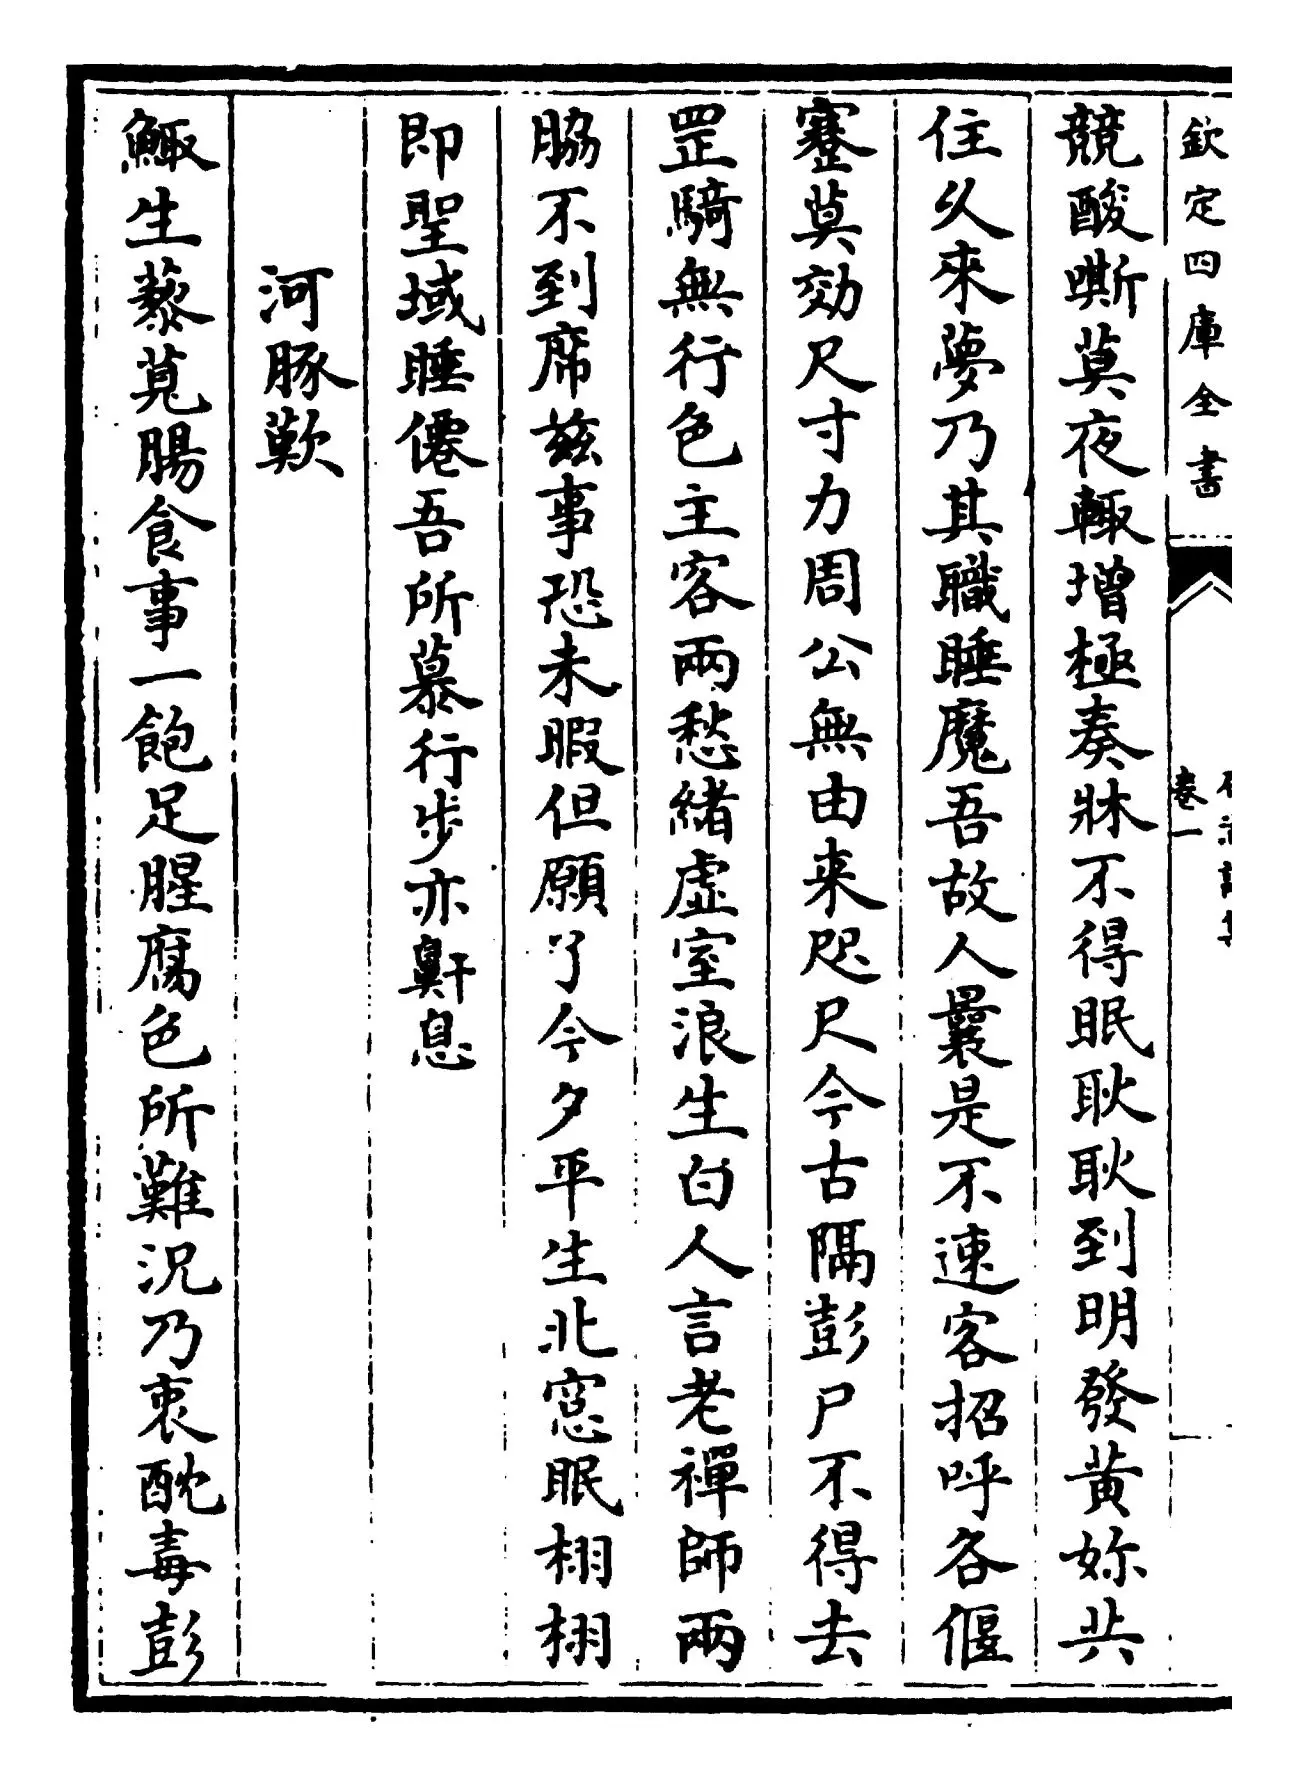 欽定四庫全書
卷一
競酸嘶莫夜輙增極奏牀不得眠耿耿到明發黄妳共
住久來夢乃其職睡魔吾故人曩是不速客招呼各偃
蹇莫効尺寸力周公無由来咫尺今古隔彭尸不得去
罡騎無行色主客兩愁緒虚室浪生白人言老禪師兩
脇不到席兹事恐未暇但願了今夕平生北窓眠栩栩
即聖域睡僊吾所慕行步亦鼾息
河豚歎
鯫生藜莧腸食事一飽足腥腐色所難況乃衷酖毒彭